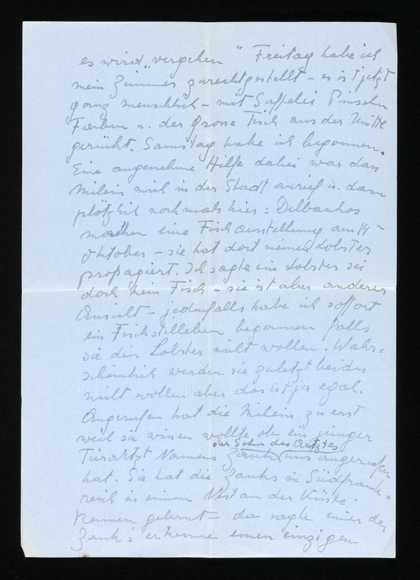 es wird „vergehen" Freitag habe ich
mein Zimmer zurechtgestellt – es ist jetzt
ganz menschlich – mit Staffelei Pinseln
Farben u. der grosse Tisch aus der Mitte
gerückt. Samstag habe ich begonnen.
Eine angenehme Hilfe dabei war dass
Milein mich in der Stadt anrief u. dann
plötzlich nochmals hier: Delbancos
machen eine Fischausstellung am 14 –
Oktober – sie hat dort meinen Lobster
propagiert. Ich sagte ein Lobster sei
doch kein Fisch – sie ist aber anderer
Ansicht – jedenfalls habe ich sofort
ein Fischstilleben begonnen falls
sie den Lobster nicht wollen. Wahr-
scheinlich werden sie zuletzt beides
nicht wollen aber das ist ja egal.
Angerufen hat die Milein zuerst
weil sie wissen wollte ob ein junger
der Sohn des Arztes
Tierarzt Namens Zanks uns angerufen
hat. Sie hat die Zanks in Südfrank-
reich in einem Nest an der Küste
kennen gelernt – da sagte einer der
Zank's er kenne einen einzigen